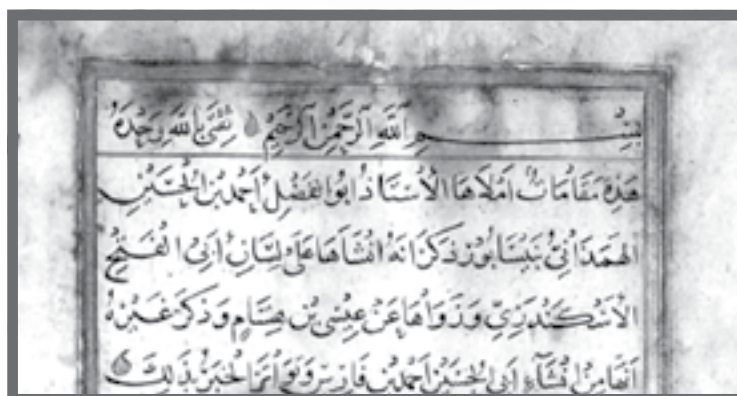 بِسْمِ اللَّهِ الرَّحْمٰنِ الرَّحِيْمِ ثِقَتِى بِاللَّهِ وَحْدَهُ
هَذِهِ مَقَامَاتٌ اَمْلَاهَا الْاُسْتَاذُ اَبُو الفَضْلِ اَحْمَدُ بْنُ الْحُسَيْنِ
الهَمَذَانِىُّ بِنَيْسَابُورَ ذَكَرَ اَنَّهُ انْشَاَهَا عَلَى لِسَانِ اَبِى الْفَتْحِ
الْاَسْكَنْدَرِىِّ وَرَوَاهَا عَنْ عِيْسَى بْنِ هِشَامٍ وَذَكَرَ غَيْرُهُ
اَنَّهَا مِنْ اِنْشَآءِ اَبِى الْحُسَيْنِ اَحْمَدَ بْنِ فَارِسٍ وَتَوَاتَرَ الْخَبَرُ بِذَلِكَ